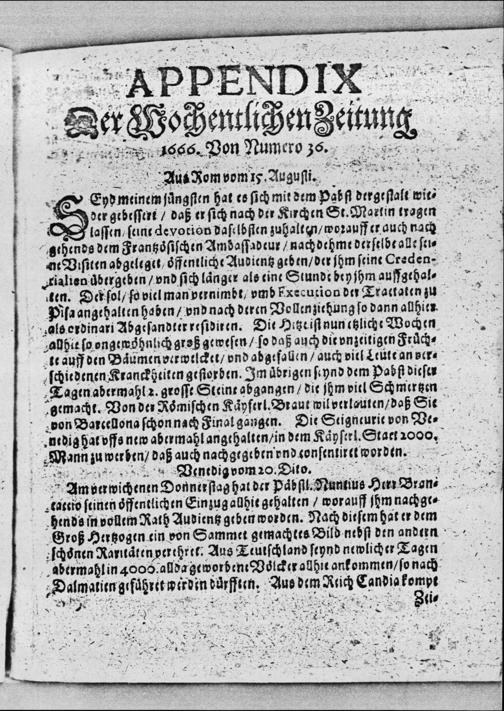 APPENDIX
Der Wochentlichen Zeitung
1666. Von Numero 36.
Aus Rom vom 15. Augusti.
SEyd meinem jüngsten hat es sich mit dem Pabst dergestalt wie-
der gebessert / daß er sich nach der Kirchen St. Martin tragen
lassen / seine devotion daselbsten zuhalten / worauff er auch nach
gehends dem Frantzösischen Ambassadeur / nachdehme derselbe alle sei-
ne Visiten abgeleget, öffentliche Audientz geben / der jhm seine Creden-
tialien übergeben / vnd sich länger als eine Stunde bey jhm auffgehal-
ten. Der sol / so viel man vernimbt, vmb Execution der Tractaten zu
Pisa angehalten haben / vnd nach deren Vollenziehung so dann allhier
als ordinari Abgesandter residiren. Die Hitze ist nun etzliche Wochen
allhie so ongewöhnlich groß gewesen / so daß auch die vnzeitigen Früch-
te auff den Bäumen verwelcket / vnd abgefallen / auch viel Leute an ver-
schiedenen Kranckheiten gestorben. Im übrigen seynd dem Pabst dieser
Tagen abermahl 2. grosse Steine abgangen / die jhm viel Schmertzen
gemacht. Von der Römischen Käyserl. Braut wil verlauten / daß Sie
von Barcellona schon nach Final gangen. Die Seigneurie von Ve-
nedig hat vffs new abermahl angehalten / in dem Käyserl. Staet 2000.
Mann zu werben / daß auch nachgegeben vnd consentiret worden.
Venedig vom 20. Dito.
Am verwichenen Donnerstag hat der Päbstl. Nuntius Herr Bran-
caccio seinen öffentlichen Einzug allhie gehalten / worauff jhm nachge-
hends in vollem Rath Audientz geben worden. Nach diesem hat er dem
Groß Hertzogen ein von Sammet gemachtes Bild nebst den andern
schönen Raritäten verehret. Aus Teutschland seynd newlicher Tagen
abermahl in 4000. allda geworbene Völcker allhie ankommen / so nach
Dalmatien geführet werden dürfften. Aus dem Reich Candia kompt
Zei-